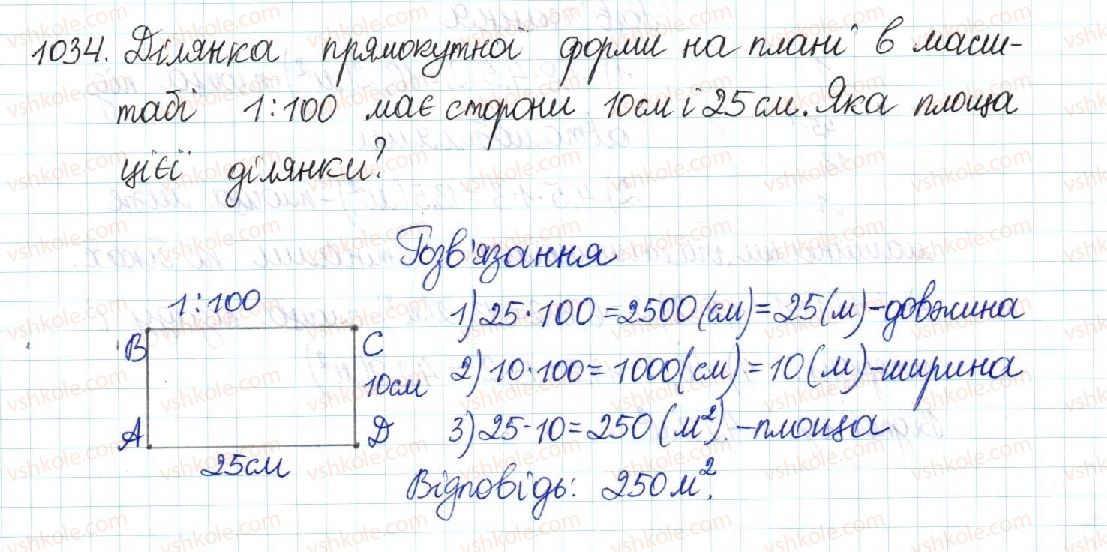 1034. Ділянка прямокутної форми на плані в масш-
табі 1:100 має сторони 10см і 25 см. Яка площа
цієї ділянки?
Розв'язання
1:100
1) 25·100=2500(см)=25(м)-довжина
B C
10см
2) 10·100=1000(см)=10(м)-ширина
A D
3) 25·10=250(м²).-площа
25см
Відповідь: 250м².